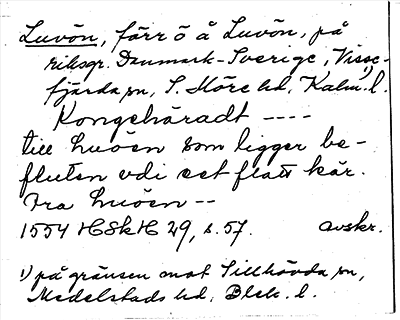 Luvön, förr ö å Luvön, på
riksgr. Danmark-Sverige, Visse-
fjärda sn, S. Möre hd, Kalm. l. 1)
Kongehäradt ----
till Luöen som ligger be-
fluten vdi eet flatt kär.
Fra Luöen --
1554 HSkH 29, s. 57. avskr.
1) på gränsen mot Tillhövda sn,
Medelstads hd, Blek. l.